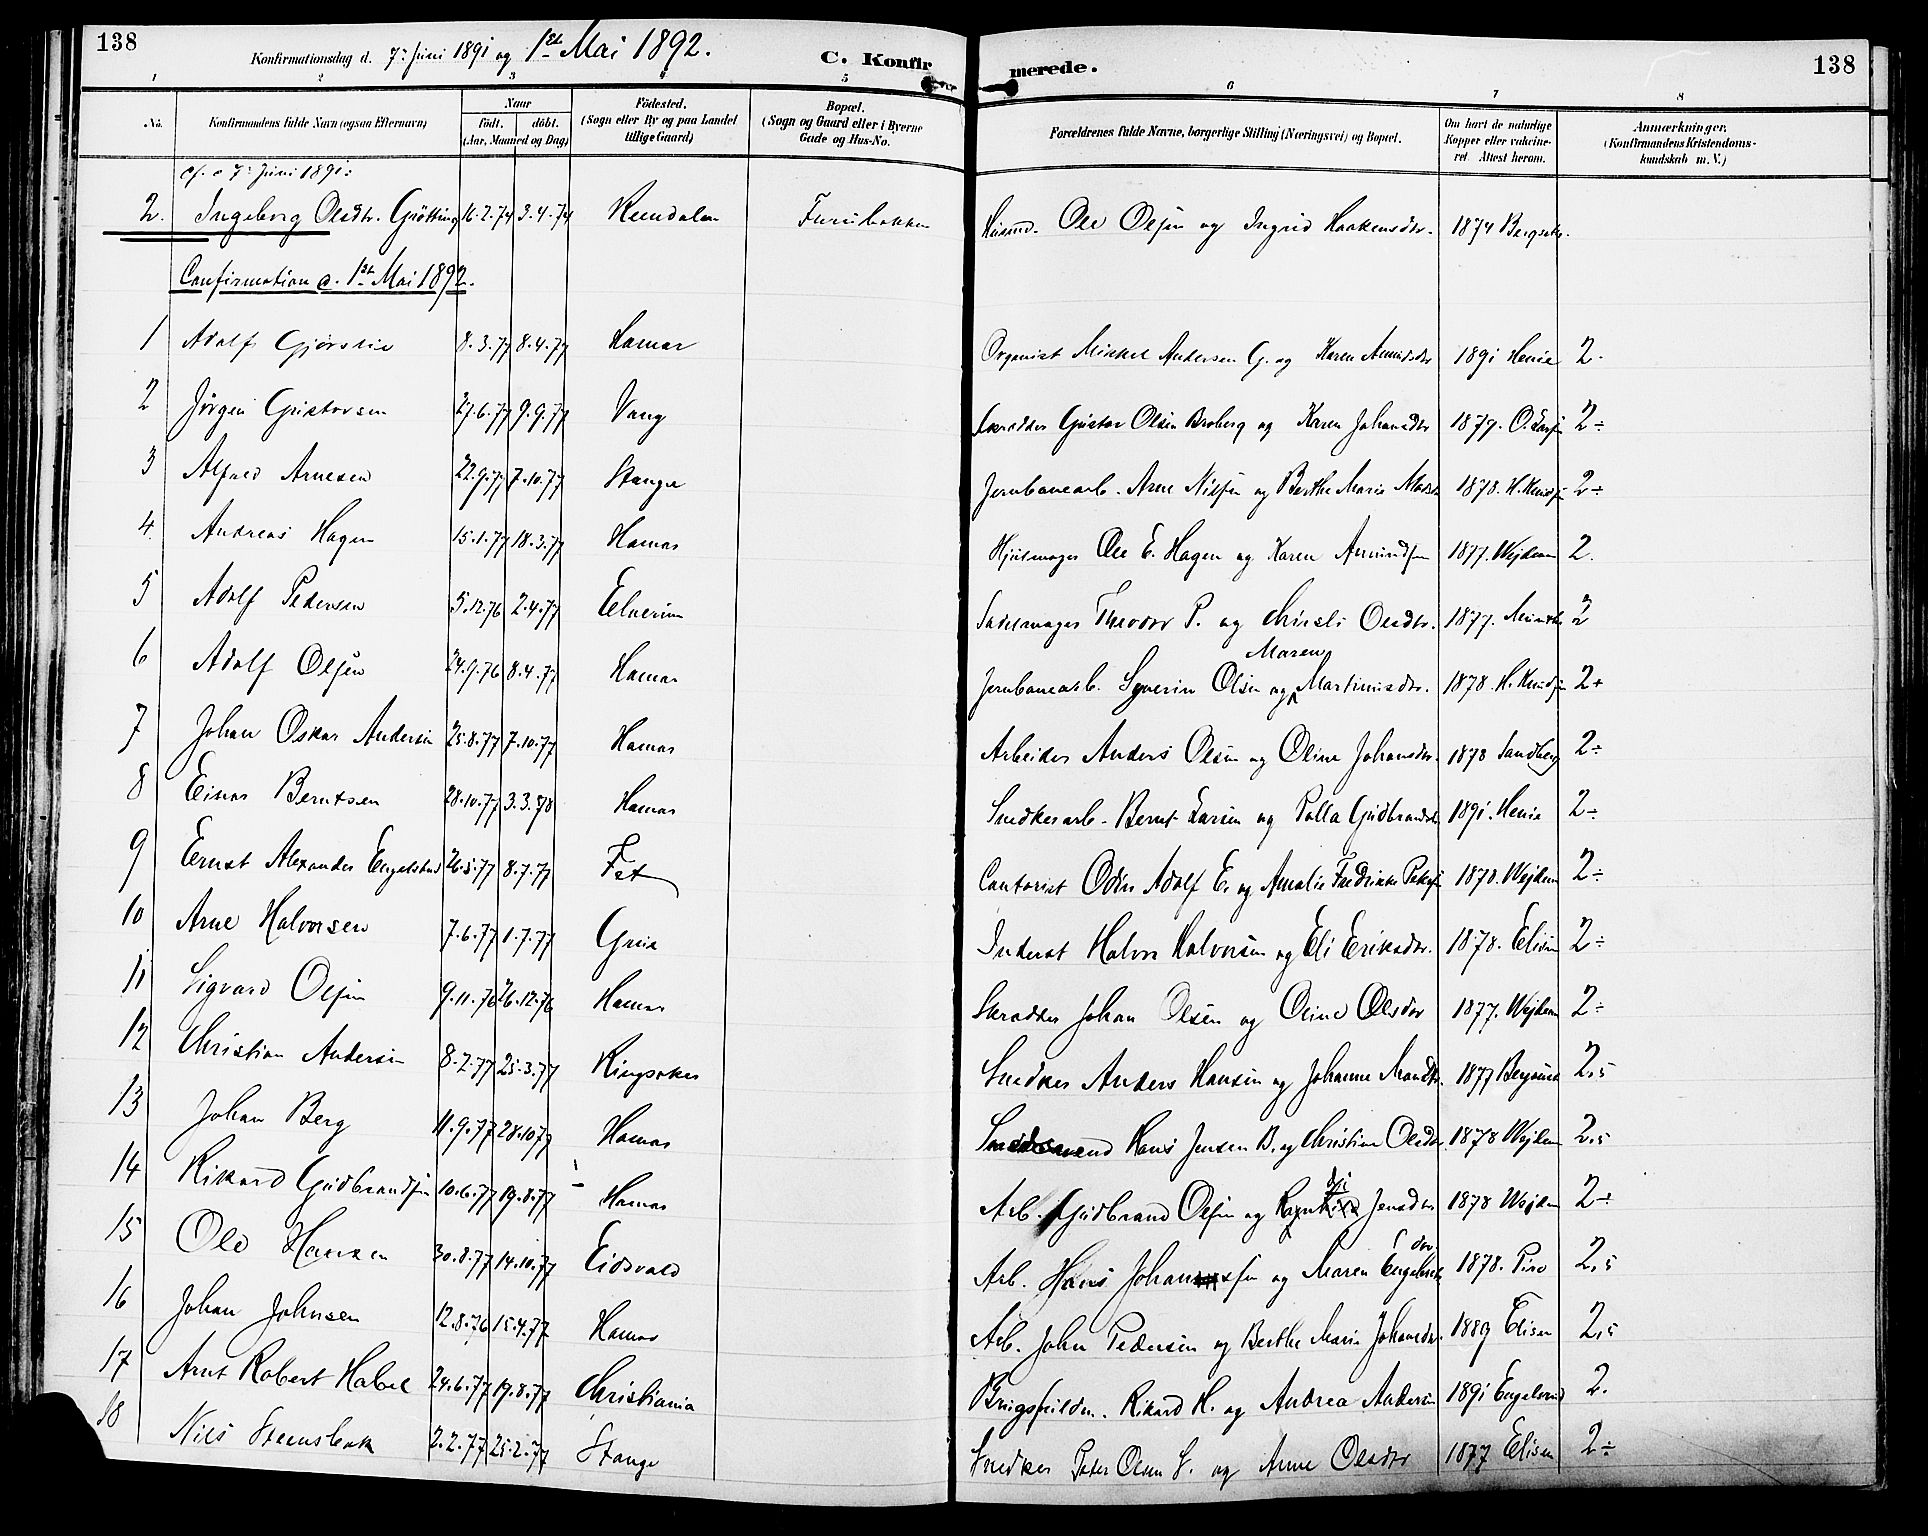 138
Konfirmationsdag d. 7. Juni 1891 og 1ste Mai 1892.
C. Konfirmerede.
138
1 2 3 4 5 6 7 8
No.
Konfirmandens fulde Navn (ogsaa Efternavn)
Naar
født. døbt.
(Aar, Maaned og Dag)
Fødested.
(Sogn eller By og paa Landet tillige Gaard)
Bopæl.
(Sogn og Gaard eller i Byerne Gade og Hus-No.
Forældrenes fulde Navne, borgerlige Stilling (Næringsvei) og Bopæl.
Om havt de naturlige Kopper eller vakcineret. Attest herom.
Anmærkninger,
(Konfirmandens Kristendomskundskab m. V.)
cf. 7. Juni 1891:
2. Ingeborg Olsdtr. Grötting 16.2.74 3.4.74 Rendalen Furubakken Husmd. Ole Olsen og Ingrid Haakensdtr. 1874
Confirmation d. 1ste Mai 1892.
1 Adolf Gjörslie 8.3.77 8.4.77 Hamar Organist Mikkel Andersen G. og Karen Amundsdtr 1891 Henie 2.
2 Jörgen Gustavsen 27.6.77 9.9.77 Vang Skrædder Gustav Olsen Broberg og Karen Johansdtr 1879. 2÷
3 Alfred Arnesen 22.9.77 7.10.77 Stange Jernbanearb. Arne Nilsen og Berthe Marie 1878. H. Knudsen 2÷
4 Andreas Hagen 15.1.77 18.3.77 Hamar Hjulmager Ole E. Hagen og Karen Amundsen 1877. Wejdem 2.
5 Adolf Pedersen 5.12.76 2.4.77 Elverum Sadelmager Theodor P. og Olsdtr. 1877. 2
6 Adolf Olsen 24.9.76 8.4.77 Hamar Jernbanearb. Syverin Olsen og Maren Martinusdtr. 1878 H. Knudsen 2+
7 Johan Oskar Andersen 25.8.77 7.10.77 Hamar Arbeider Anders Olsen og Oline Johansdtr. 1878 Sandberg 2÷
8 Einar Berntsen 28.10.77 3.3.78 Hamar Snedkerarb. Bernt Larsen og Gudbrandsdtr 1891. Henie 2÷
9 Ernst Alexander Engelstad 26.5.77 8.7.77 Fet Cantorist Odin Adolf E. og Amalie Fredrikke 1878. Wejdem 2÷
10 Arne Halvorsen 7.6.77 1.7.77 Grue Inderst Halvor Halvorsen og Eli Eriksdtr. 1878. 2÷
11 Sigvard Olsen 9.11.76 26.12.76 Hamar Skrædder Johan Olsen og Oline Olsdtr 1877. Wejdem 2÷
12 Christian Andersen 8.2.77 25.3.77 Ringsaker Snedker Anders Hansen og Johanne 1877 2,5
13 Johan Berg 11.9.77 28.10.77 Hamar Hans Jensen B. og Christine Olsdtr 1878 Wejdem 2,5
14 Rikard Gudbrandsen 10.6.77 19.8.77 Hamar Arb. Gudbrand Olsen og Jensdtr 1878 Wejdem 2÷
15 Ole Hansen 30.8.77 14.10.77 Eidsvold Arb. Hans Johansen og Maren Engebretsdtr. 1878. 2,5
16 Johan Johnsen 12.8.76 15.4.77 Hamar Arb. John Pedersen og Berthe Marie Johansdtr. 1889 2,5
17 Arnt Robert Habel 24.6.77 19.8.77 Christiania Rikard H. og Andrea Andersen 1891 Engelsrud 2.
18 Nils Steensbak 2.2.77 25.2.77 Stange Snedker Peter Olsen S. og Anne Olsdtr 1877 2÷